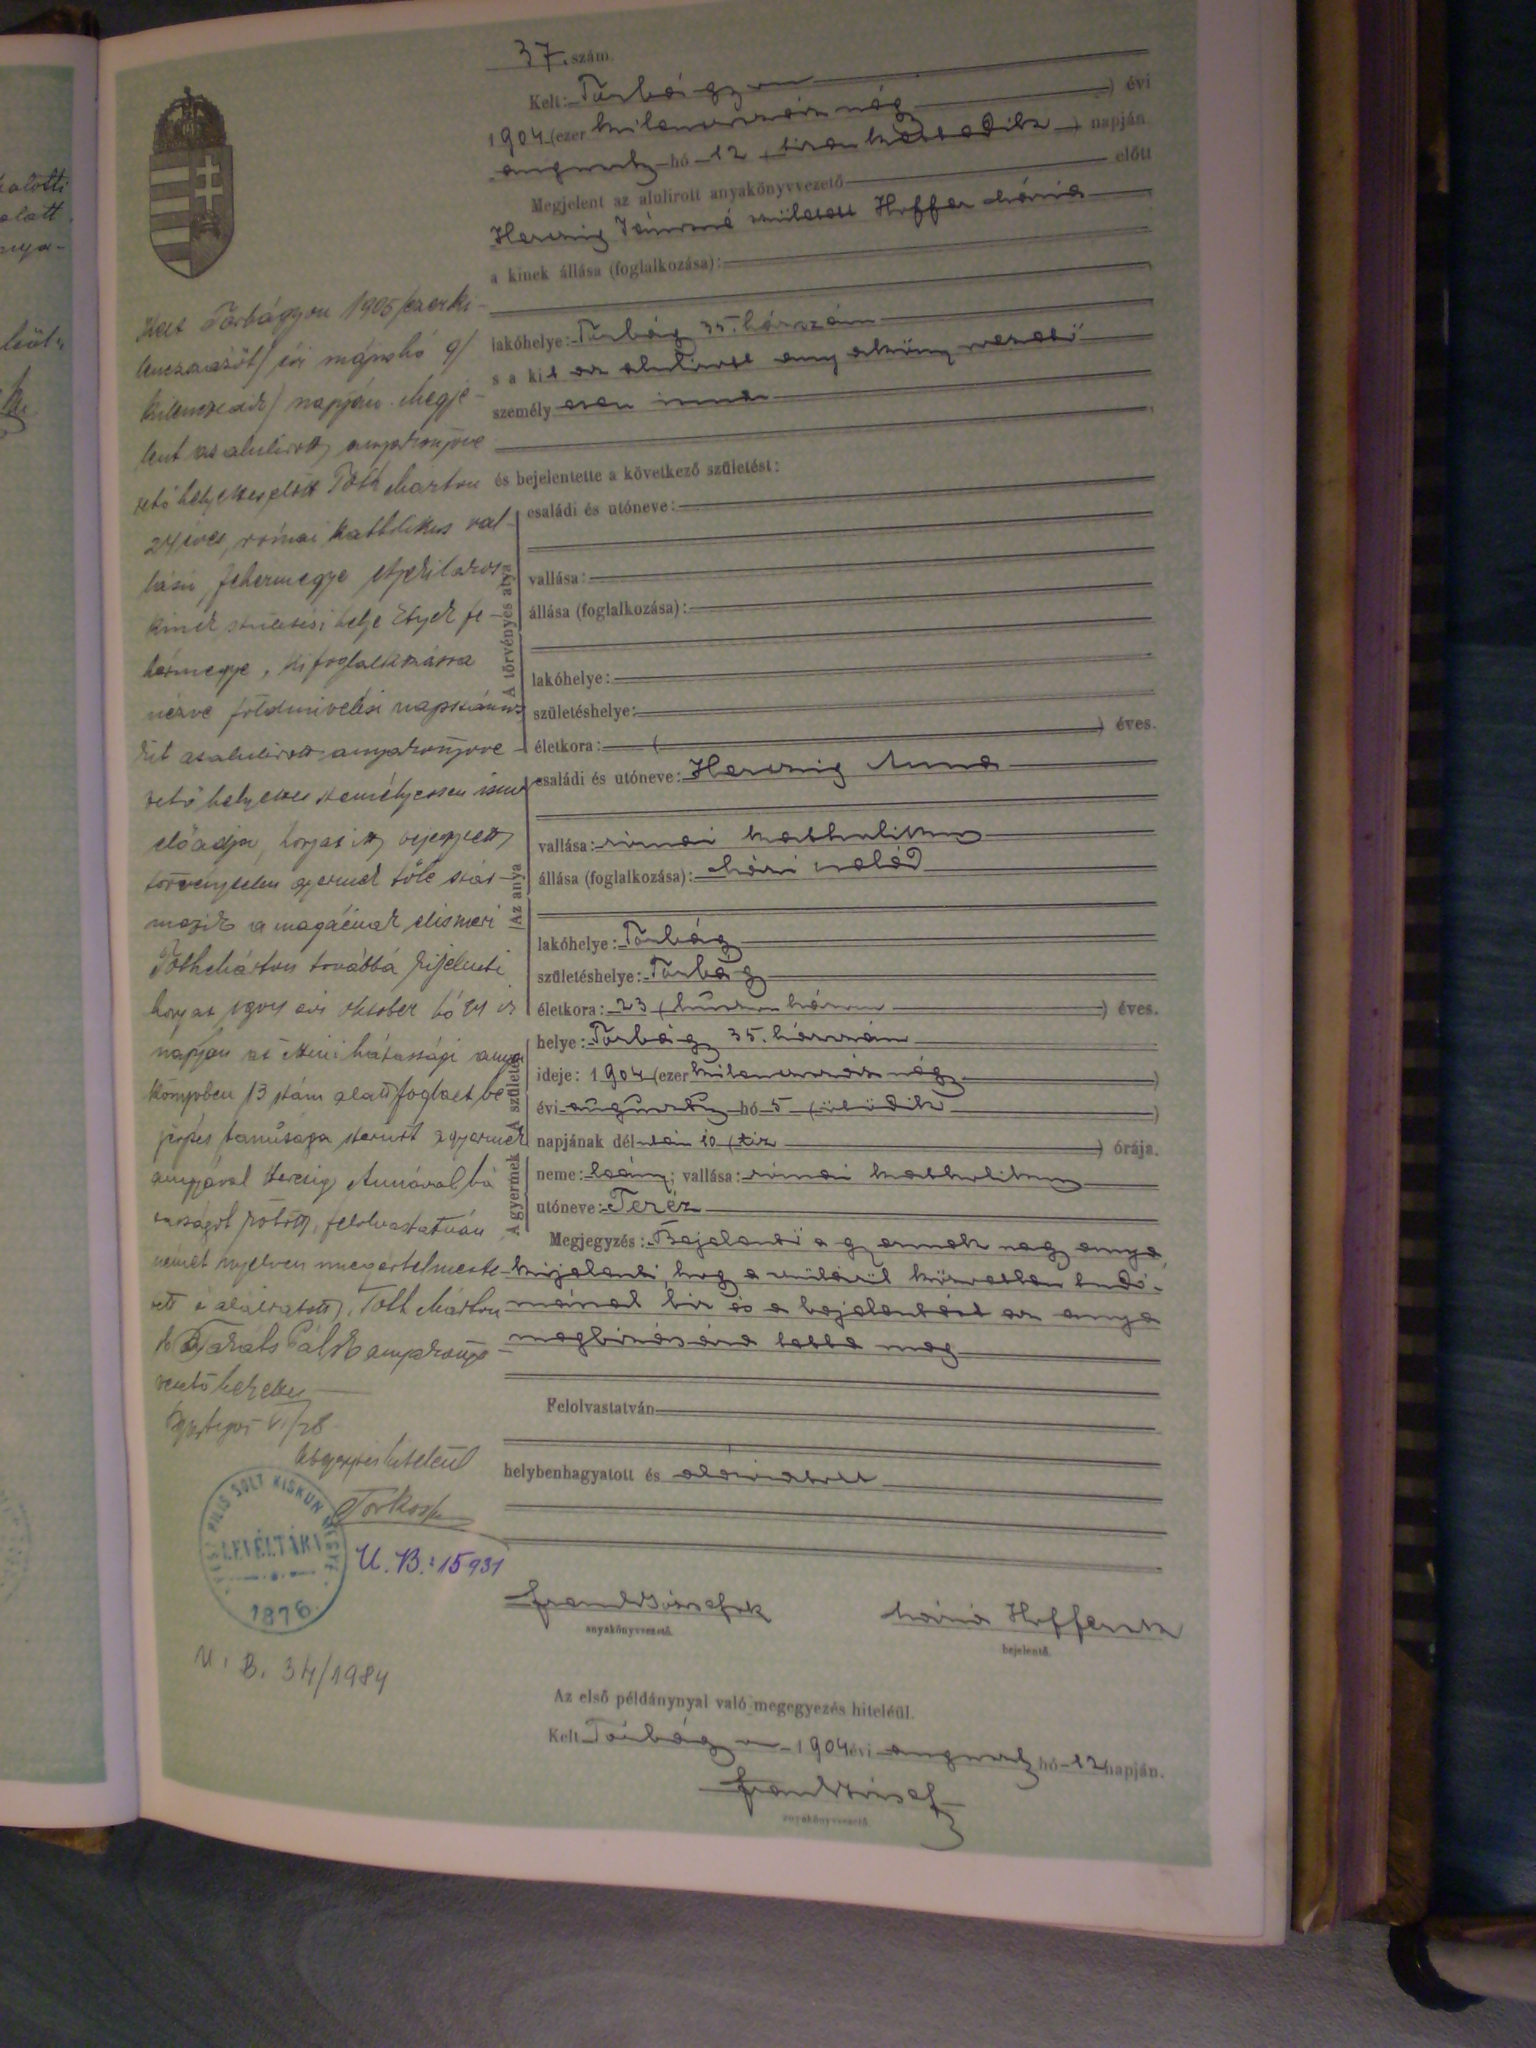 37. szám.
Kelt: Torbágyon
1904 (ezer kilenczszáz négy) évi
augusztus hó 12 (tizenkettedik) napján.
Megjelent az alulirott anyakönyvvezető előtt
Herczig Jánosné született Hoffer Mária
a kinek állása (foglalkozása):
lakóhelye: Torbágy 35. házszám
s a kit az alulirott anyakönyvvezető
személyesen ismer
és bejelentette a következő születést:
A törvényes atya
családi és utóneve:
vallása:
állása (foglalkozása):
lakóhelye:
születéshelye:
életkora: ( ) éves.
Az anya
családi és utóneve: Herczig Anna
vallása: római katholikus
állása (foglalkozása): házi cseléd
lakóhelye: Torbágy
születéshelye: Torbágy
életkora: 23 (huszonhárom) éves.
A születés
helye: Torbágy 35. házszám
ideje: 1904 (ezer kilenczszáz négy)
évi augusztus hó 5 (ötödik)
napjának délután 10 (tiz) órája.
A gyermek
neme: leány; vallása: római katholikus
utóneve: Teréz
Megjegyzés: Bejelentő a gyermek nagyanyja
kijelenti, hogy a szülésről közvetlen tudo-
mással bir és a bejelentést az anya
megbizásából tette meg
Felolvastatván
helybenhagyatott és aláiratott
anyakönyvvezető.
Mária Hoffer
bejelentő.
Az első példánynyal való megegyezés hiteléül.
Kelt Torbágyon 1904 évi augusztus hó 12 napján.
anyakönyvvezető.
Kelt Torbágyon 1905 (ezerki-
lenczszázöt) évi május hó 9 (
kilenczedik) napján. Megje-
lent az alulirott anyakönyvve
zető helyettes előtt Tóth Márton
24 éves, római katholikus val-
lásu, fehérmegye
kinek születési helye Etyek fe-
hérmegye, ki foglalkozására
nézve földmivelési napszámos
kit az alulirott anyakönyvve-
zető helyettes személyesen ismer
előadja, hogy az itt bejegyzett
törvénytelen gyermek tőle szár-
mazik a magáénak elismeri
Tóth Márton továbbá kijelenti
hogy az 1904 évi oktober hó 24 ik
napján az házassági anya
könyvben 13 szám alatt foglalt be
jegyzés tanúsága szerint a gyermek
anyjával Herczig Annával há
zasságot kötött, felolvastatván
német nyelven megértelmezte-
tett s aláiratott. Tóth Márton
Takáts Pál sk anyakönyv
vezető helyettes
hiteléül
PEST PILIS SOLT KISKUN MEGYE
LEVÉLTÁRA
1876.
U. B.: 15931
U. B. 34/1984